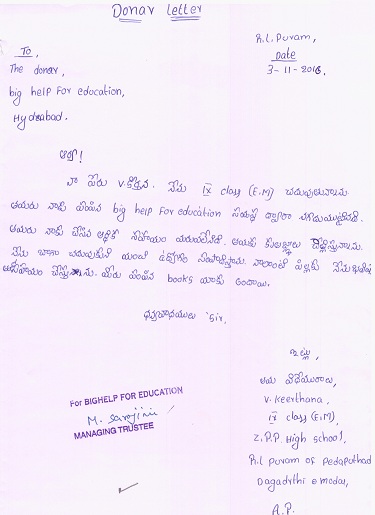 Donar Letter
R.L. Puram,
Date
3-11-2016,
To,
The donar,
big help For education,
Hyderabad.
ఆర్యా!
నా పేరు V.కీర్తన. నేను IX class (E.M) చదువుతున్నాను
నాకు big help For education సంస్థ ద్వారా
నాకు చేసిన ఆర్థిక సహాయం మరువలేనిది.
నేను బాగా చదువుకుని మంచి ఉద్యోగం నాలాంటి పిల్లలకు నేను
సహాయం చేస్తాను. మీరు పంపిన books నాకు అందాయి.
ధన్యవాదములు Sir.
ఇట్లు,
తమ విధేయురాలు,
V. Keerthana,
IX class (E.M),
Z.P.P. High school,
R.L Puram of Pedaputhad
Dagadrthi e modal,
A.P.
For BIGHELP FOR EDUCATION
M. Sarojini
MANAGING TRUSTEE